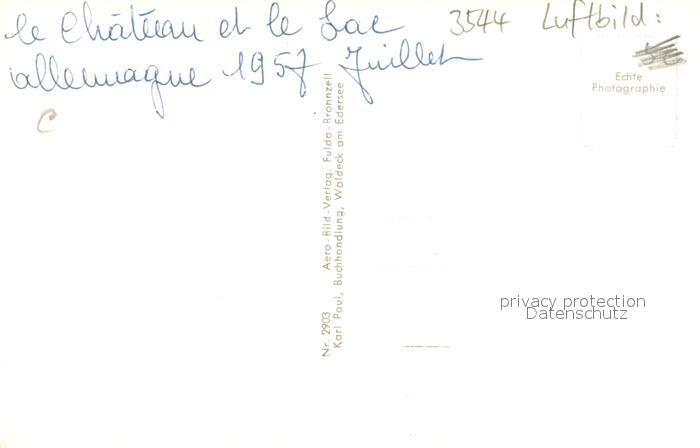 le Château et le Lac
allemagne 1957 Juillet
C
3544 Luftbild:
Echte
Photographie
Nr. 2903 Aero-Bild-Verlag, Fulda-Bronnzell
Karl Paul, Buchhandlung, Waldeck am Edersee
privacy protection
Datenschutz